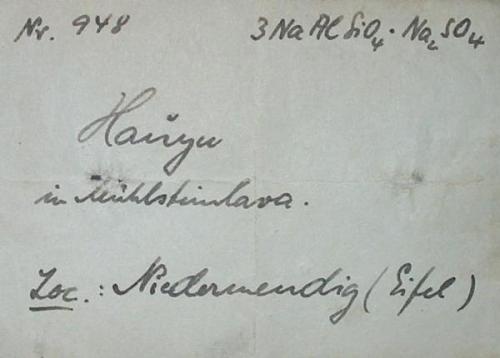 Nr. 948 3NaAlSiO₄·Na₂SO₄
Haüyn
in Mühlsteinlava.
Loc.: Niedermendig (Eifel)